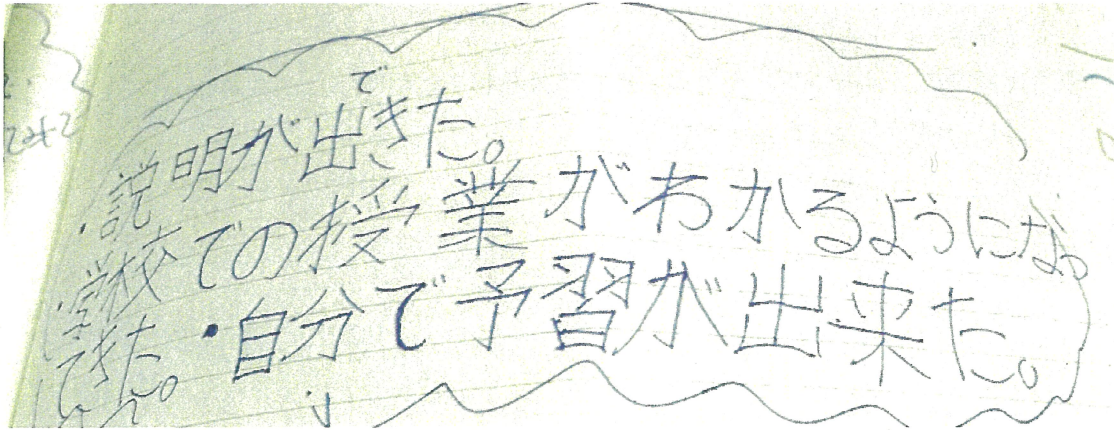 ・説明が出きた。
で
・学校での授業がわかるようになっ
てきた。
・自分で予習が出来た。